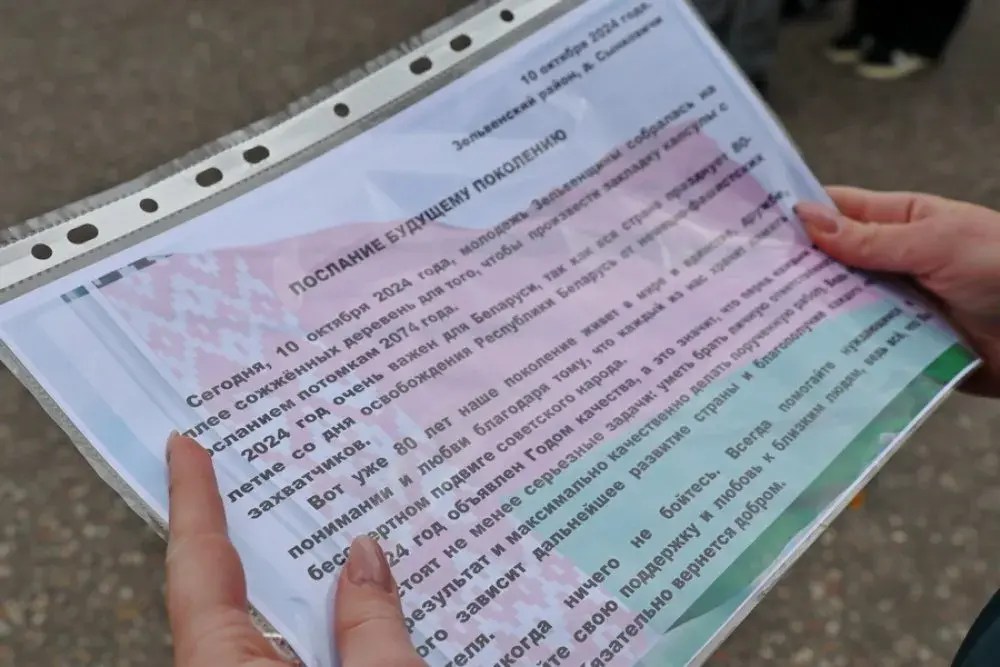 10 октября 2024 года.
Зельвенский район, д. Сынковичи
ПОСЛАНИЕ БУДУЩЕМУ ПОКОЛЕНИЮ
Сегодня, 10 октября 2024 года, молодежь Зельвенщины собралась на
сожжённых деревень для того, чтобы произвести закладку капсулы с
посланием потомкам 2074 года.
2024 год очень важен для Беларуси, так как вся страна празднует 80-
летие со дня освобождения Республики Беларусь от немецко-фашистских
захватчиков.
Вот уже 80 лет наше поколение живет в мире и единстве, дружбе,
понимании и любви благодаря тому, что каждый из нас хранит память
бессмертном подвиге советского народа.
24 год объявлен Годом качества, а это значит, что перед каждым
стоят не менее серьезные задачи: уметь брать личную
результат и максимально качественно делать порученную работу,
зависит дальнейшее развитие страны и благополучия

ничего не бойтесь. Всегда помогайте нуждающимся
свою поддержку и любовь к близким людям, ведь всё, что
вернется добром.